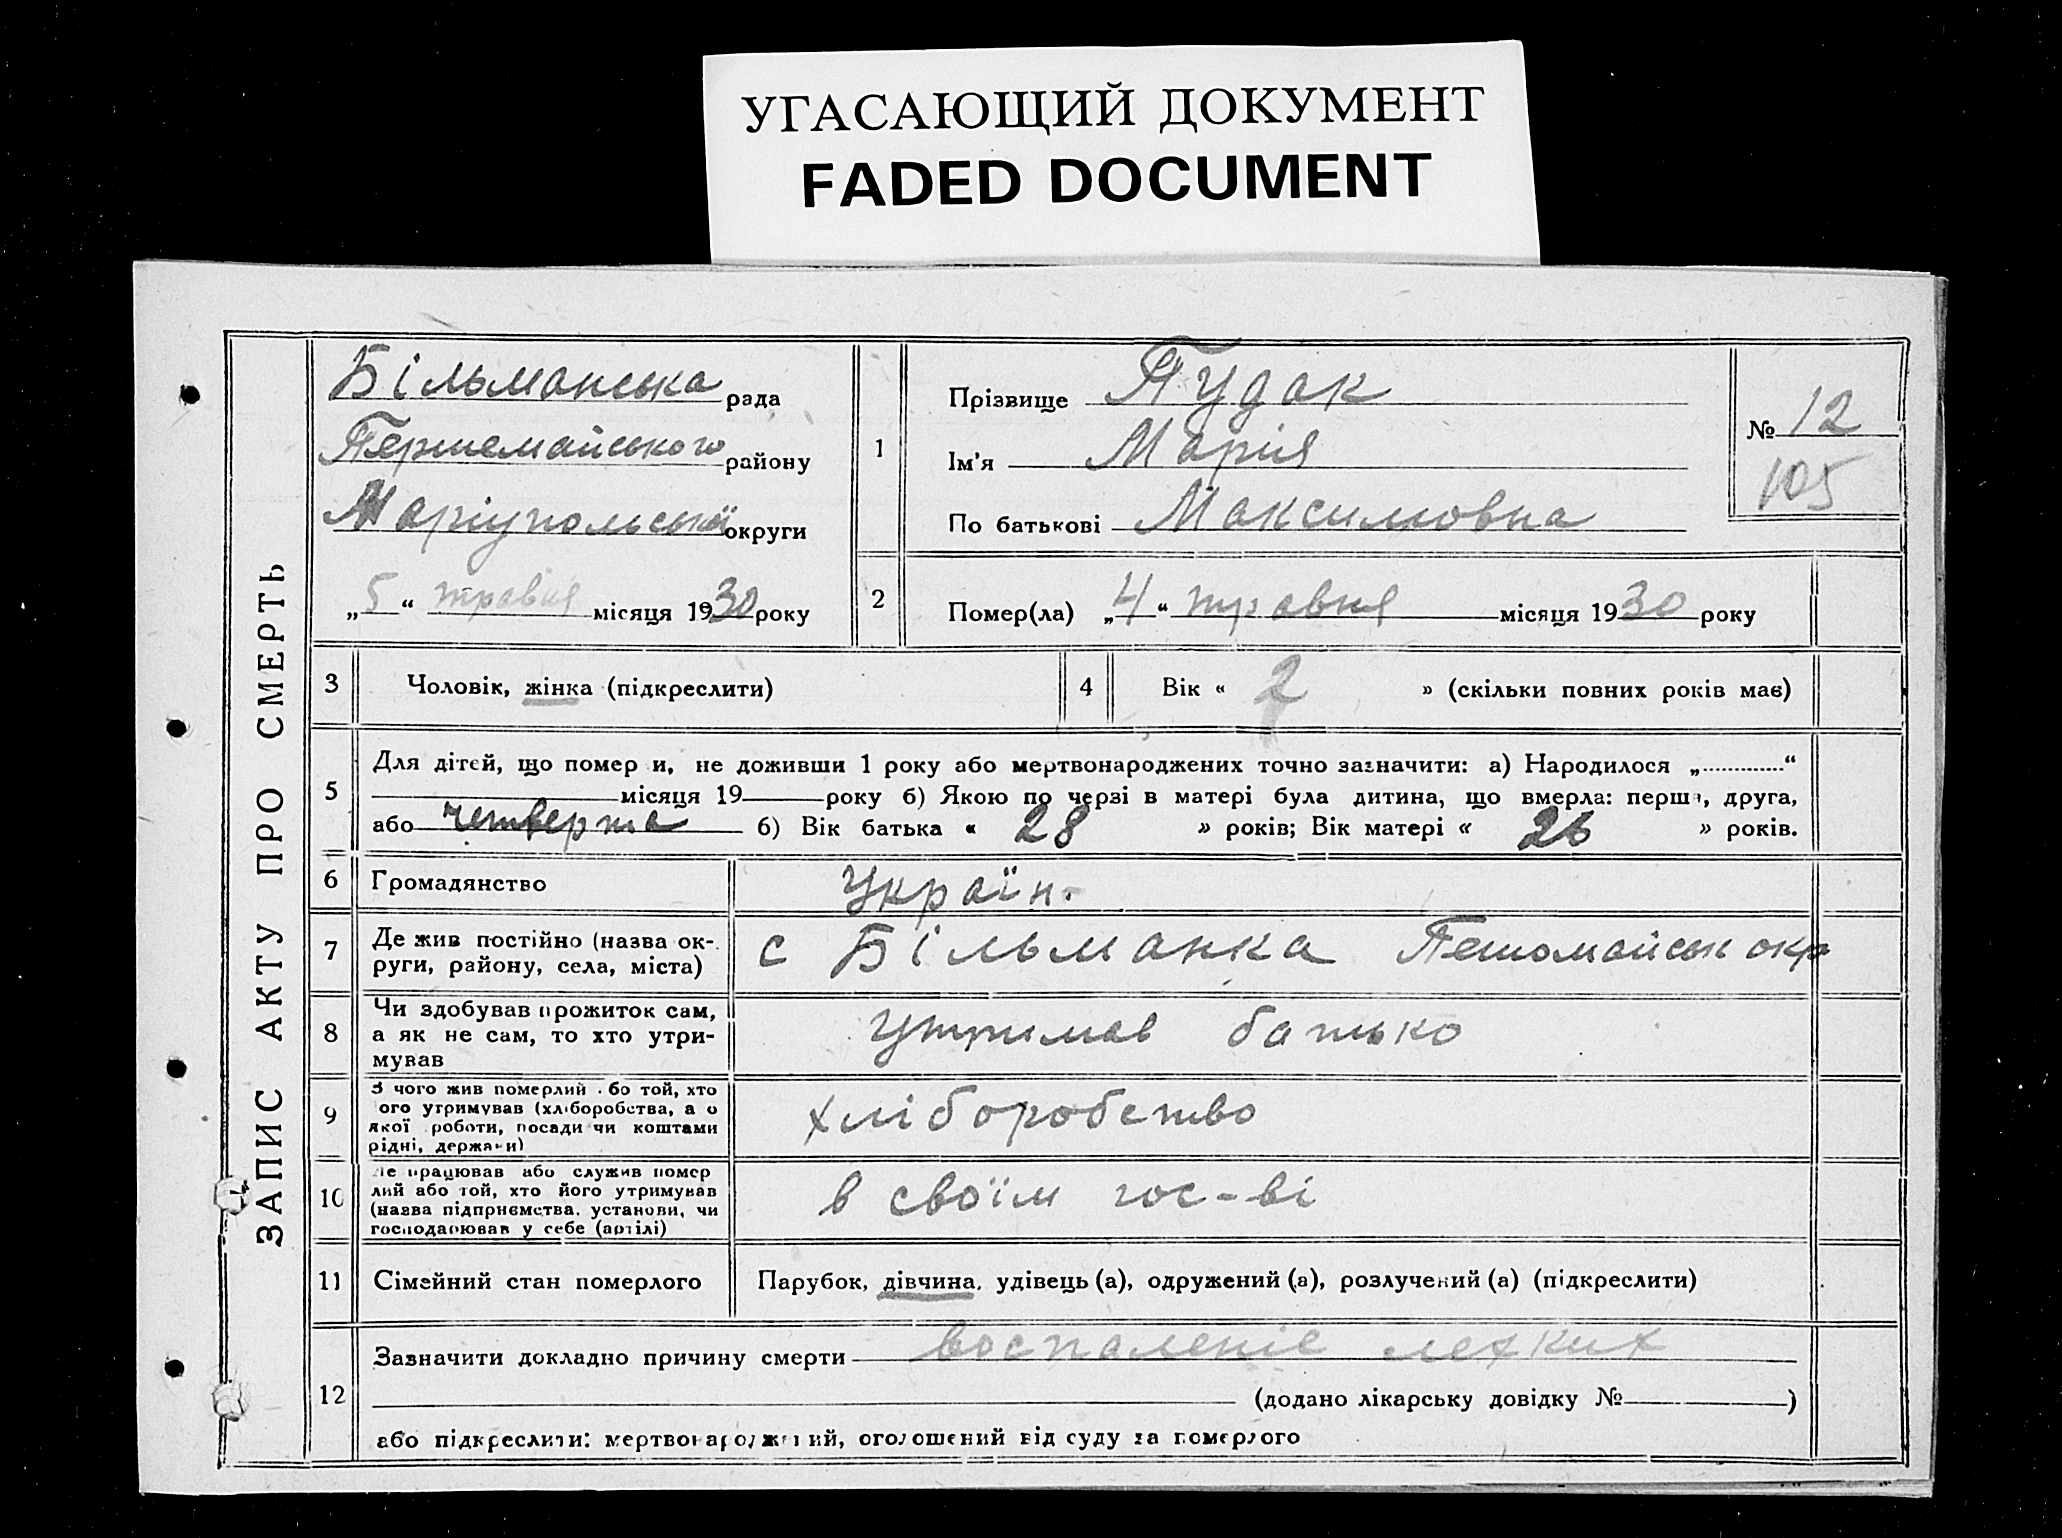 УГАСАЮЩИЙ ДОКУМЕНТ
FADED DOCUMENT
ЗАПИС АКТУ ПРО СМЕРТЬ
Більманська рада
Першемайського району
Маріупольської округи
„5“ травня місяця 1930 року
1
Прізвище Пудак
Ім'я Марія
По батькові Максимовна
№ 12
105
2
Помер(ла) „4“ травня місяця 1930 року
3 Чоловік, жінка (підкреслити)
4 Вік « 2 » (скільки повних років має)
5
Для дітей, що помер и, не доживши 1 року або мертвонароджених точно зазначити: а) Народилося „.............“
місяця 19 року б) Якою по черзі в матері була дитина, що вмерла: перша, друга,
або четверта б) Вік батька « 28 » років; Вік матері « 26 » років.
6 Громадянство Україн.
7 Де жив постійно (назва ок-
руги, району, села, міста)
с Більманка Пешомайськ окр
8 Чи здобував прожиток сам,
а як не сам, то хто утри-
мував
Утримав батько
9 З чого жив померлий або той, хто
ого утримував (хліборобства, а о
якої роботи, посади чи коштами
рідні, держави)
хліборобство
10 Де працював або служив помер
лий або той, хто його утримував
(назва підприємства, установи, чи
господарював у себе (артілі)
в своїм гос-ві
11 Сімейний стан померлого Парубок, дівчина, удівець (а), одружений (а), розлучений (а) (підкреслити)
12
Зазначити докладно причину смерти воспаленіе легких
(додано лікарську довідку № )
або підкреслити: мертвонароджений, оголошений від суду за померлого